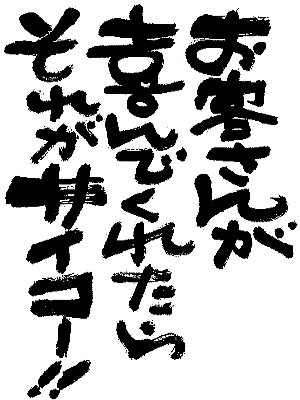 お客さんが
喜んでくれたら
それがサイコー!!